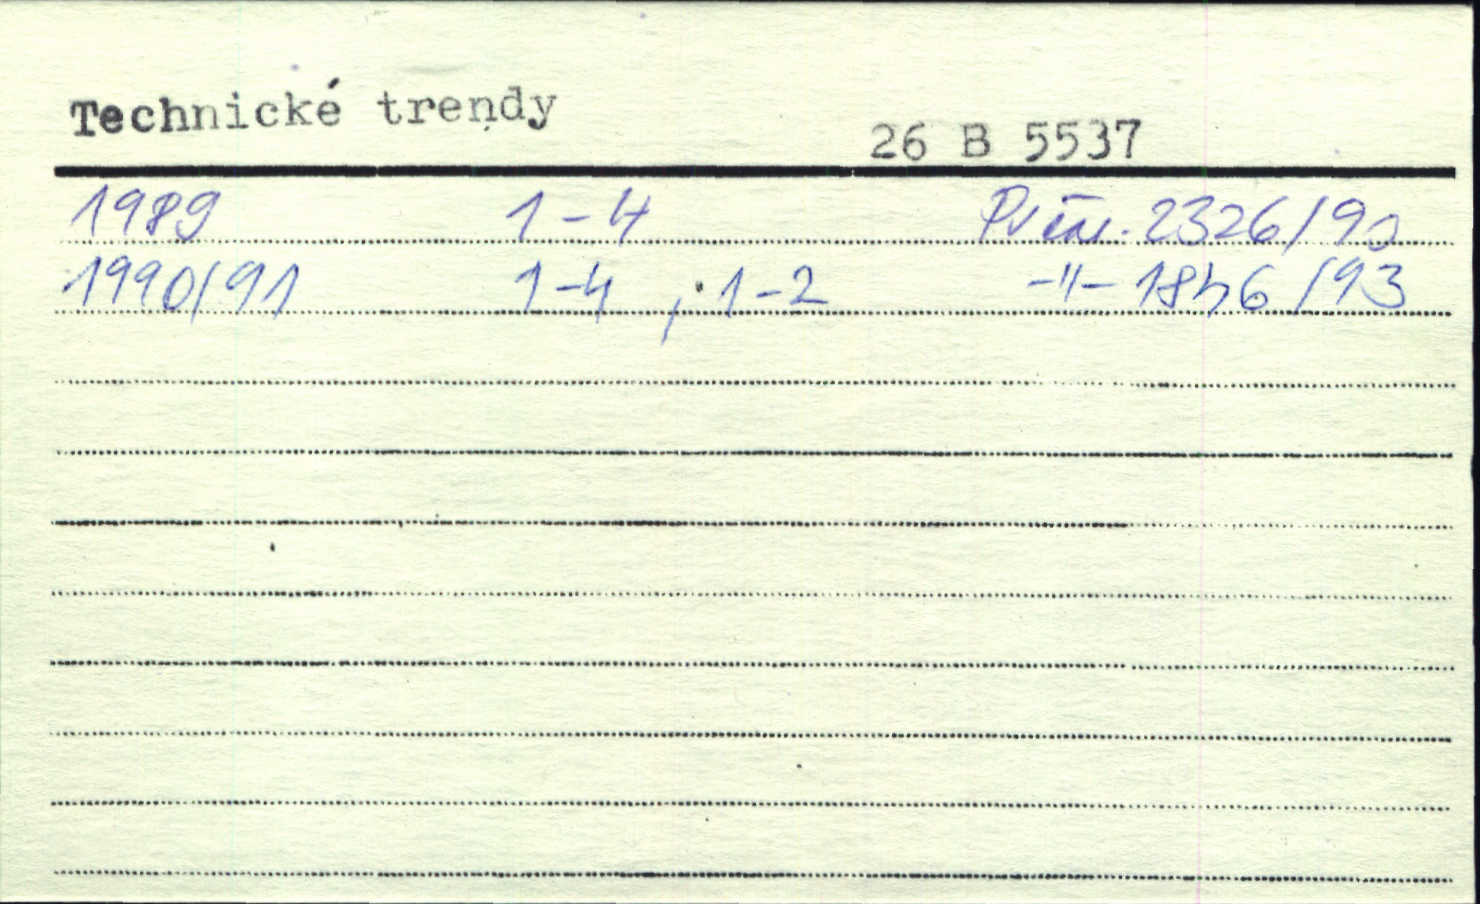 Technické trendy
26 B 5537
1989 1-4 Pr čas. 2326/90
1990/91 1-4 ; 1-2 -"- 1846/93